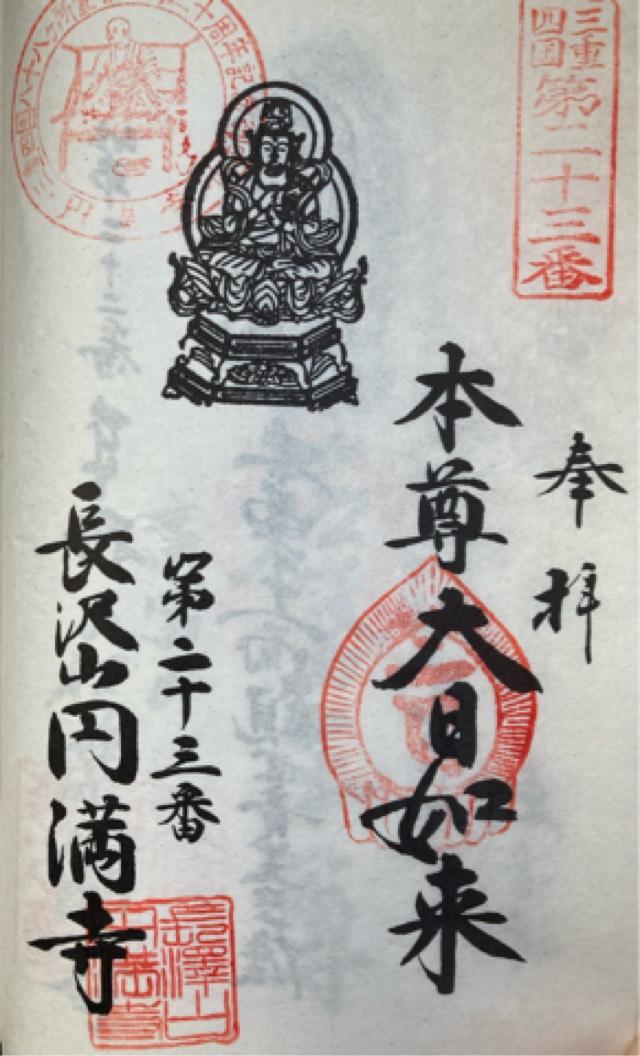 三重
四国
第二十三番
奉拝
本尊大日如来
第二十三番
長沢山円満寺
長澤山
円満寺